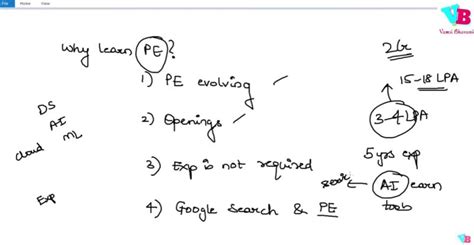 File Home View
VB
Vamsi Bhavani
Why learn PE?
1) PE evolving
2) Openings
3) Exp is not required
4) Google Search & PE
DS
AI
ML
cloud
Exp
15-18 LPA
3-4 LPA
5 yrs exp
AI earn
tools
VB